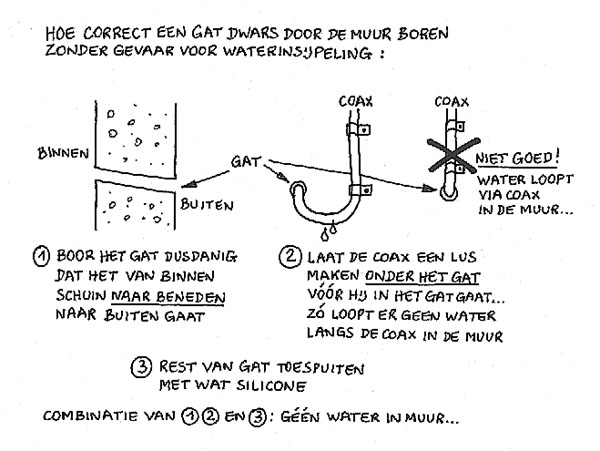 HOE CORRECT EEN GAT DWARS DOOR DE MUUR BOREN
ZONDER GEVAAR VOOR WATERINSIJPELING :
COAX
COAX
BINNEN
GAT
BUITEN
NIET GOED!
WATER LOOPT
VIA COAX
IN DE MUUR...
① BOOR HET GAT DUSDANIG
DAT HET VAN BINNEN
SCHUIN NAAR BENEDEN
NAAR BUITEN GAAT
② LAAT DE COAX EEN LUS
MAKEN ONDER HET GAT
VÓÓR HIJ IN HET GAT GAAT...
ZÓ LOOPT ER GEEN WATER
LANGS DE COAX IN DE MUUR
③ REST VAN GAT TOESPUITEN
MET WAT SILICONE
COMBINATIE VAN ① ② EN ③: GÉÉN WATER IN MUUR...